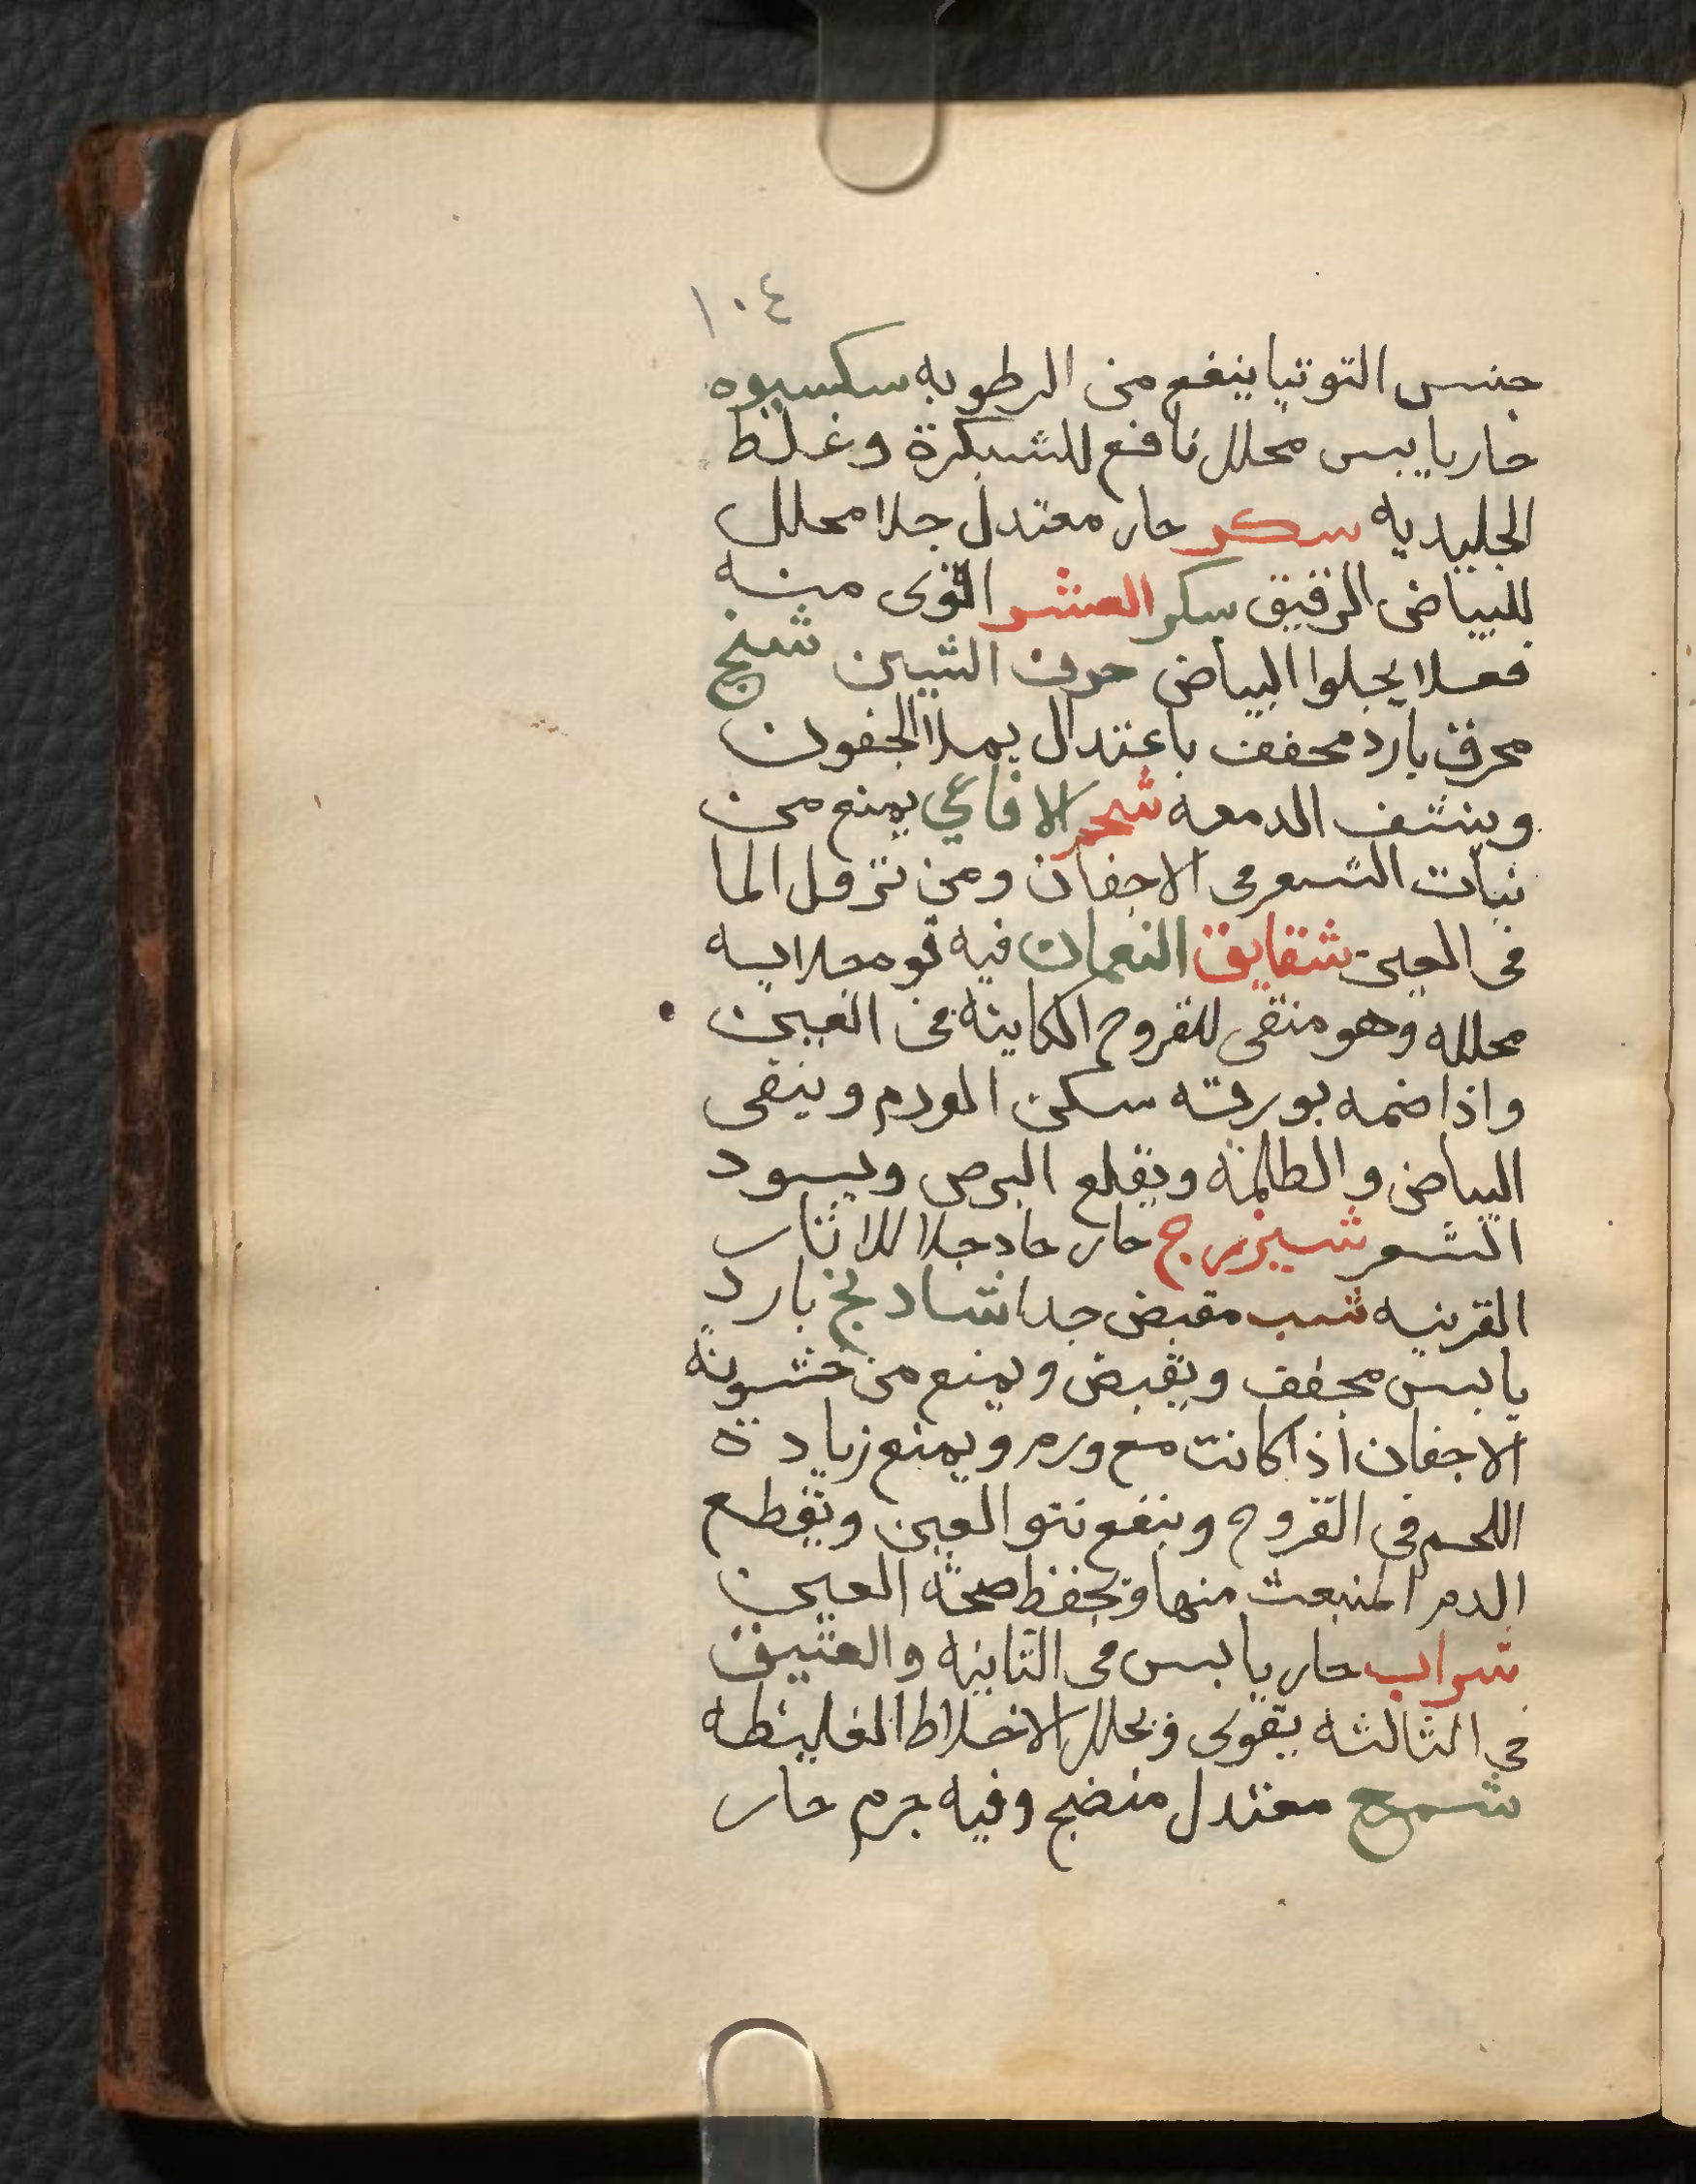 ١٠٤
جنس التوتيا ينفع من الرطوبه سكبسوه
حار يابس محلل نافع للشبكرة وغلظ
الجليديه سكر حار معتدل جلا محلل
للبياض الرقيق سكر العشر اقوى منه
فعلا يجلوا البياض حرف الشين شنج
محرق بارد مجفف باعتدال يملا الجفون
وينشف الدمعه شحم الافاعي يمنع من
نبات الشعر في الاجفان ومن نزول الما
في العين شقايق النعمان فيه قوه جلابيه
محلله وهو منقى للقروح الكاينه في العين
واذا ضمد بورقه سكن الورم وينقى
البياض والظلمة ويقلع البرص ويسود
الشعر شيزرج حار حاد جلا للاثار
القرنيه شب مقبض جدا شادنج بارد
يابس مجفف ويقبض ويمنع من خشونة
الاجفان اذا كانت مع ورم ويمنع زيادة
اللحم في القروح وينفع نتو العين ويقطع
الدم المنبعث منها ويحفظ صحة العين
شراب حار يابس في الثانيه والعتيق
في الثالثه يقوى ويحلل الاخلاط الغليظه
شمع معتدل منضج وفيه جرم حار